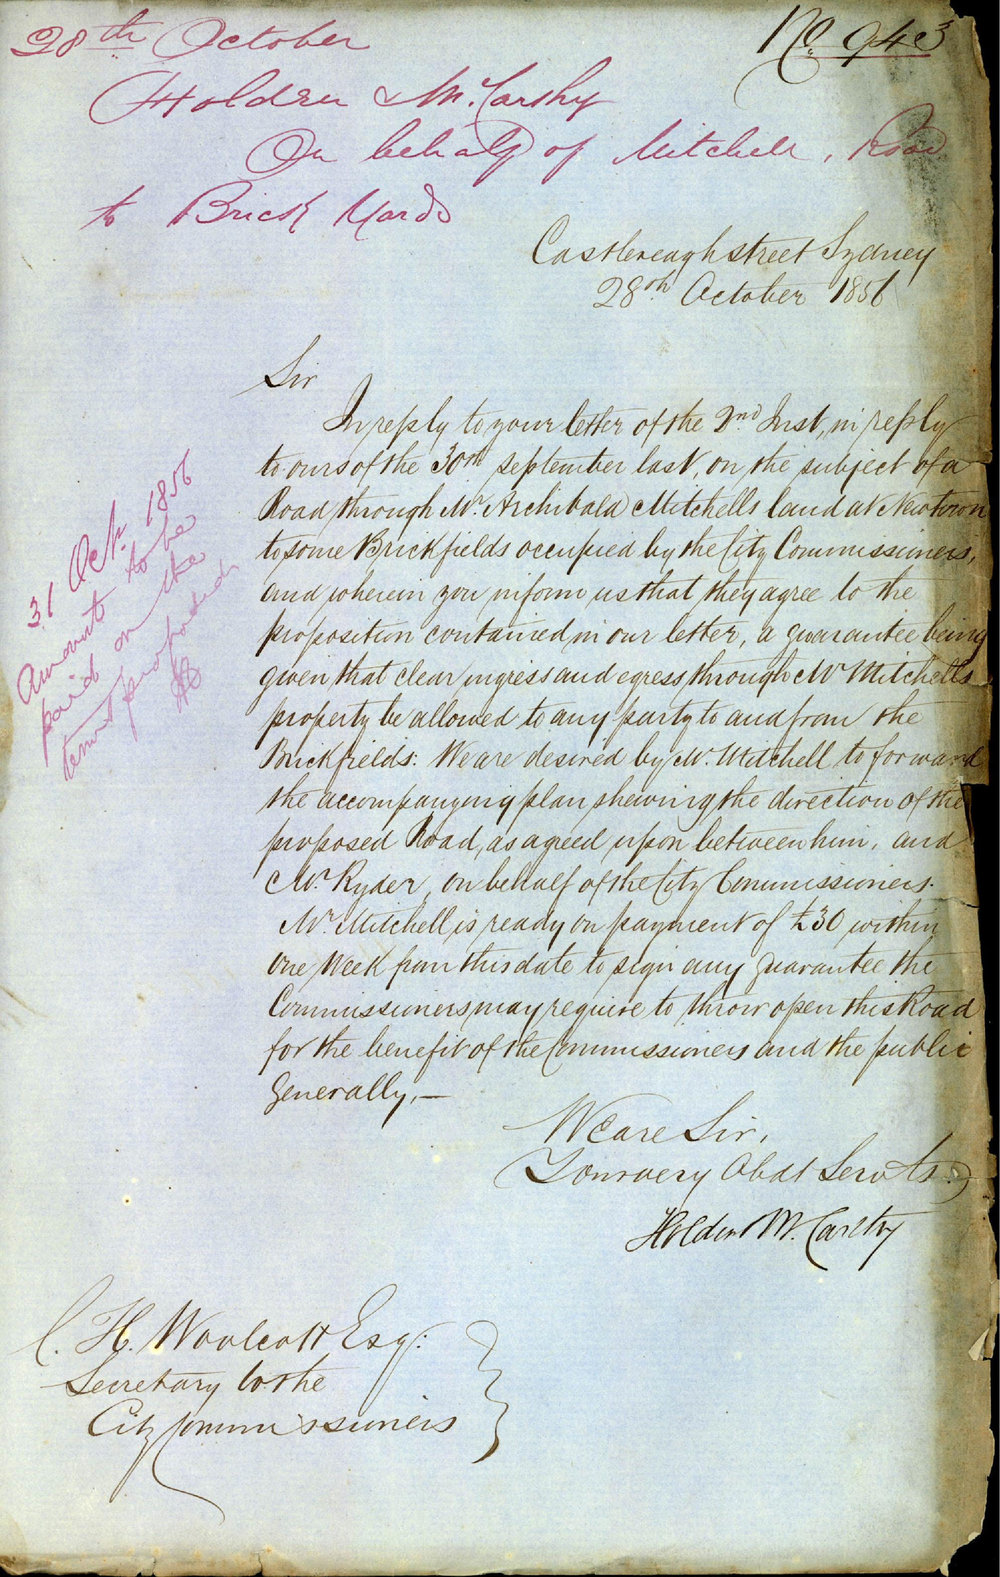 No. 943
28th October
Holden & McCarthy
On behalf of Mitchell, Road
to Brick Yards
Castlereagh street Sydney
28th October 1856
Sir
In reply to your letter of the 2nd Inst, in reply
to ours of the 30th September last, on the subject of a
Road through Mr. Archibald Mitchells land at Newtown
to some Brickfields occupied by the City Commissioners,
and wherein you inform us that they agree to the
proposition contained in our letter, a guarantee being
given that clear ingress and egress through Mr Mitchells
property be allowed to any party to and from the
Brickfields: We are desired by Mr. Mitchell to forward
the accompanying plan shewing the direction of the
proposed Road, as agreed upon between him, and
Mr. Ryder, on behalf of the City Commissioners.
Mr. Mitchell is ready on payment of £30 within
one Week from this date to sign any guarantee the
Commissioners may require to throw open this Road
for the benefit of the Commissioners and the public
Generally,—
We are Sir,
Your very Obdt Servts.
Holden McCarthy
C. H. Woolcott Esq:
Secretary to the
City Commissioners
31 Oct. 1856
Amount to be
paid on the
terms proposed